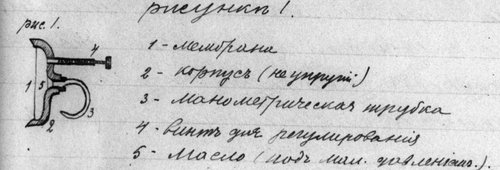 рисункѣ 1.
рис 1.
1 - мембрана
2 - корпусъ (не упругій)
3 - манометрическая трубка
4 - винтъ для регулирования
5 - масло (подъ мал. давленіемъ.)
4
1
5
3
2